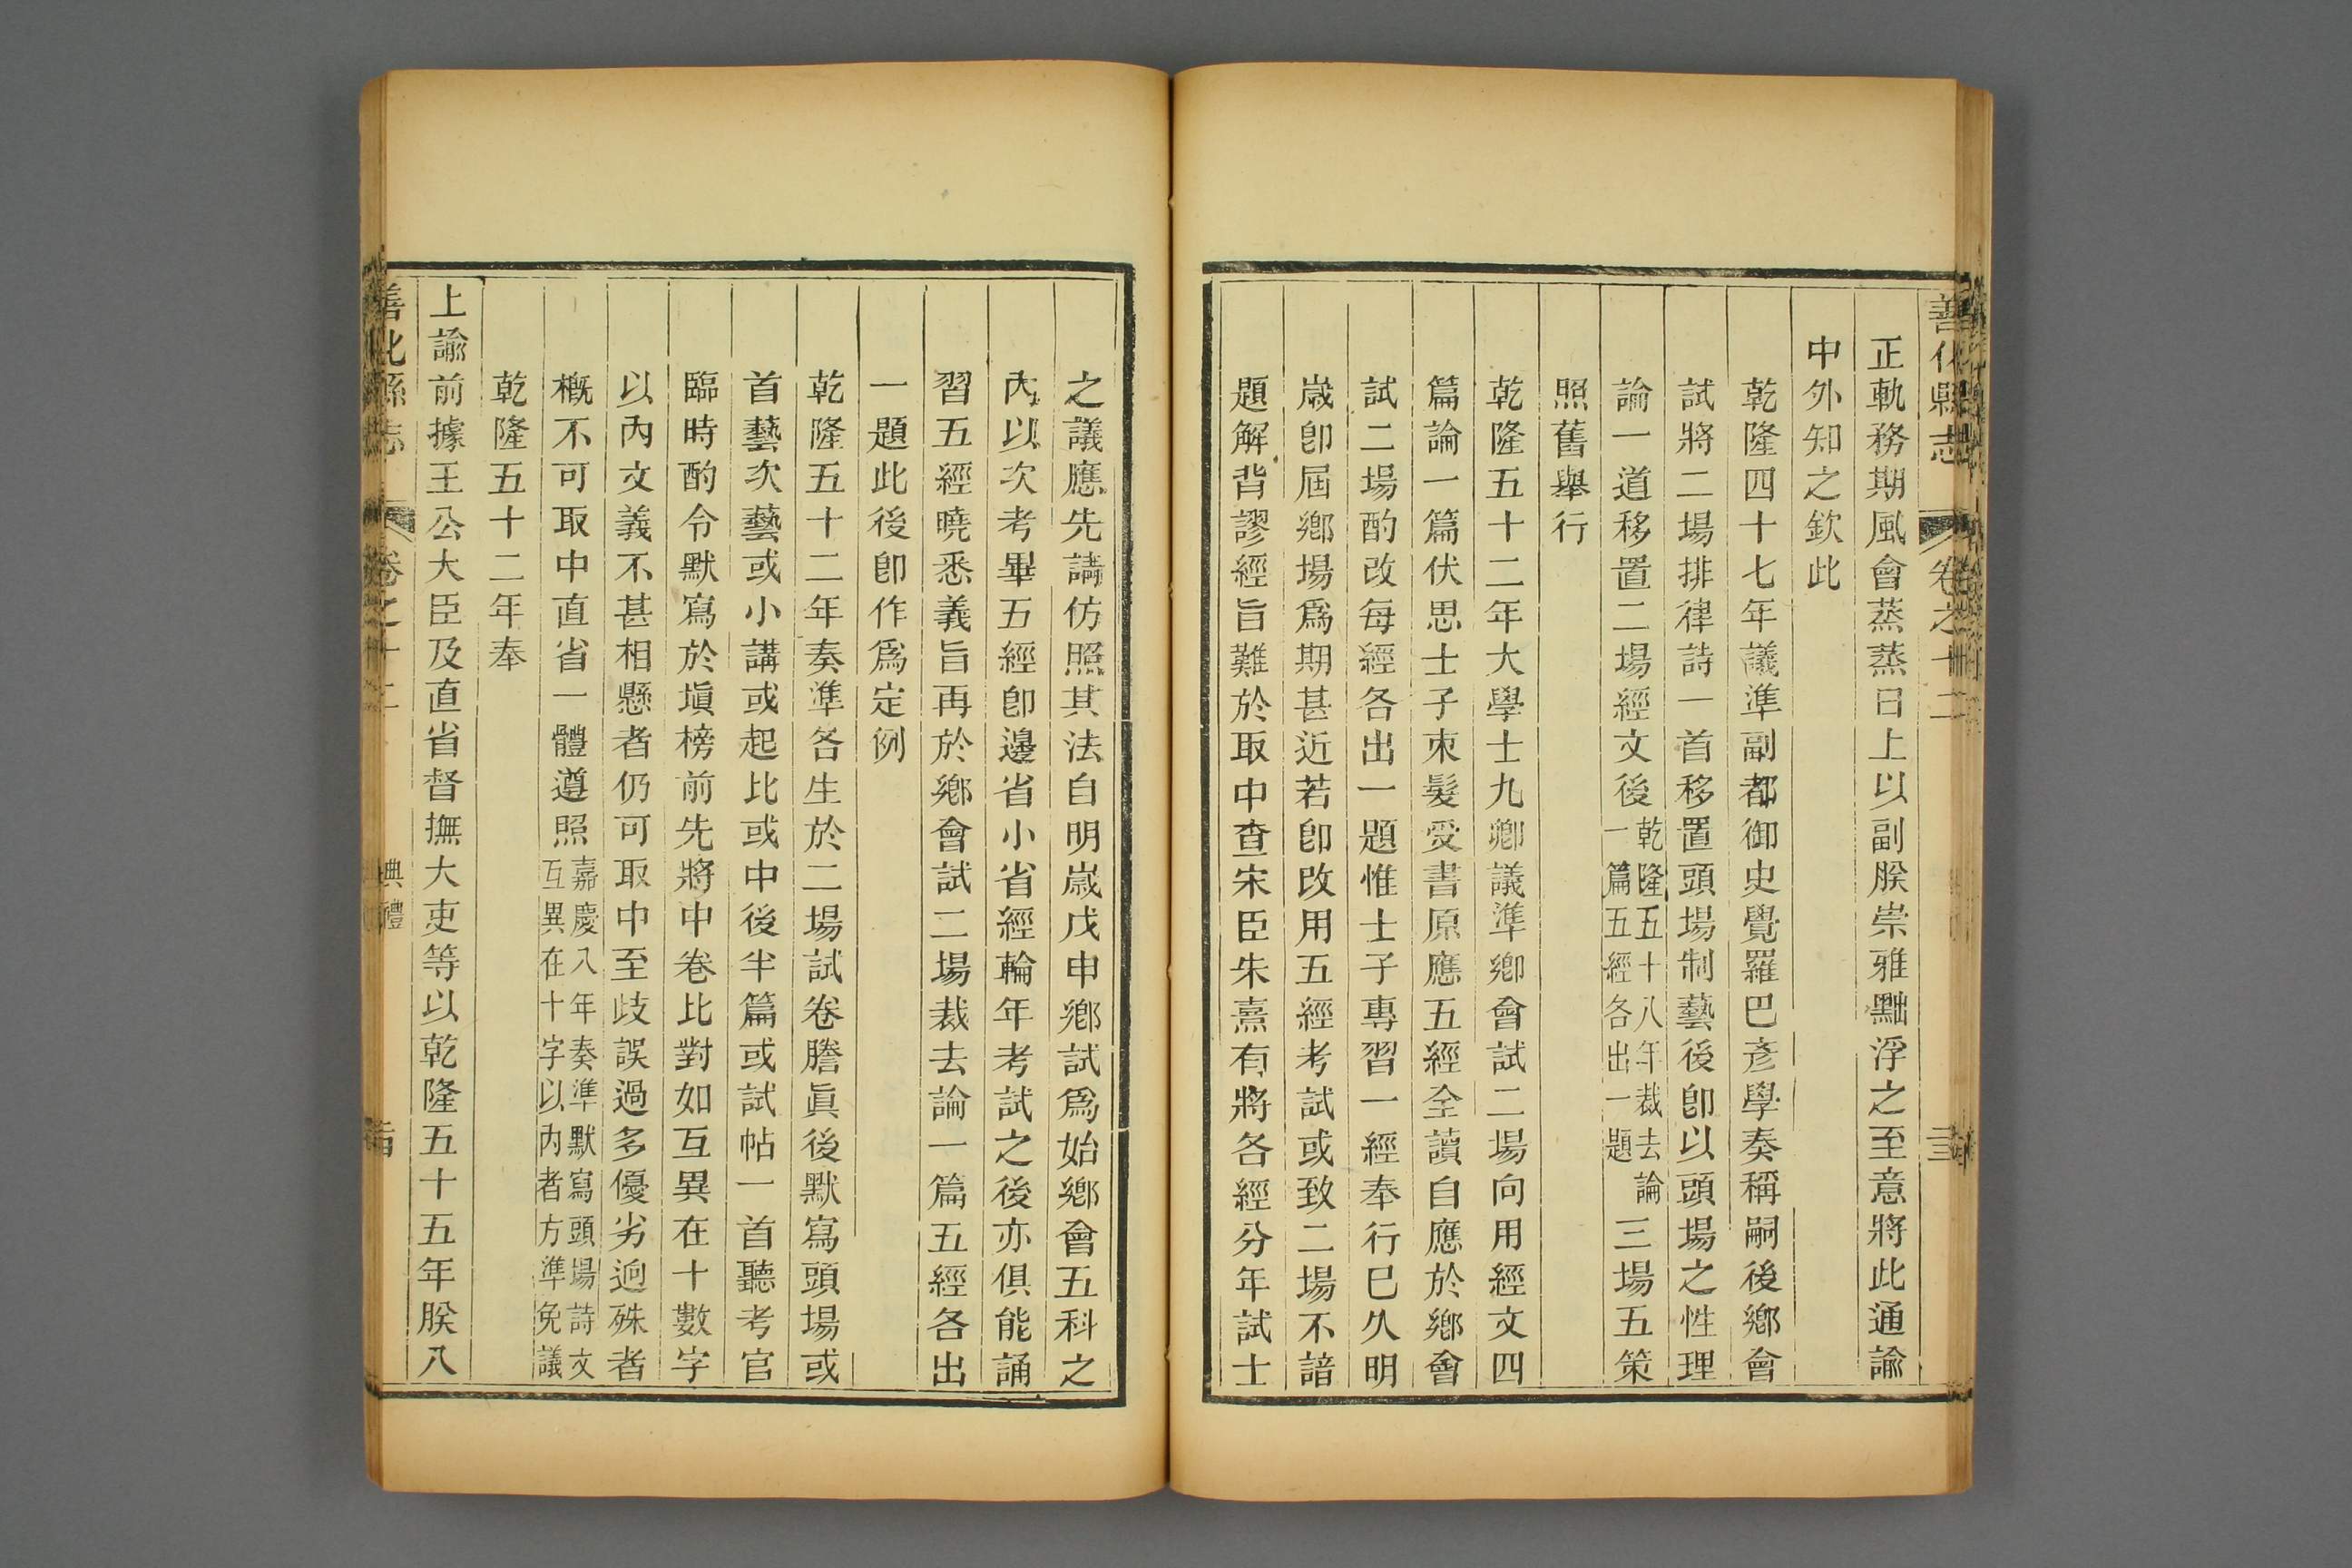 善化縣志 卷之十二
正軌務期風會蒸蒸日上以副朕崇雅黜浮之至意將此通諭
中外知之欽此
乾隆四十七年議準副都御史覺羅巴彥學奏稱嗣後鄉會
試將二場排律詩一首移置頭場制藝後卽以頭場之性理
論一道移置二場經文後乾隆五十八年裁去論一篇五經各出一題三場五策
照舊舉行
乾隆五十二年大學士九卿議準鄉會試二場向用經文四
篇論一篇伏思士子束髮受書原應五經全讀自應於鄉會
試二場酌改每經各出一題惟士子專習一經奉行已久明
歲卽屆鄉場爲期甚近若卽改用五經考試或致二場不諳
題解背謬經旨難於取中查宋臣朱熹有將各經分年試士
之議應先請仿照其法自明歲戊申鄉試爲始鄉會五科之
內以次考畢五經卽邊省小省經輪年考試之後亦俱能誦
習五經曉悉義旨再於鄉會試二場裁去論一篇五經各出
一題此後卽作爲定例
乾隆五十二年奏準各生於二場試卷謄眞後默寫頭場或
首藝次藝或小講或起比或中後半篇或試帖一首聽考官
臨時酌令默寫於塡榜前先將中卷比對如互異在十數字
以內文義不甚相懸者仍可取中至歧誤過多優劣逈殊者
槪不可取中直省一體遵照嘉慶八年奏準默寫頭場詩文互異在十字以內者方準免議
乾隆五十二年奉
上諭前據王公大臣及直省督撫大吏等以乾隆五十五年朕八
善化縣志 卷之十二 典禮